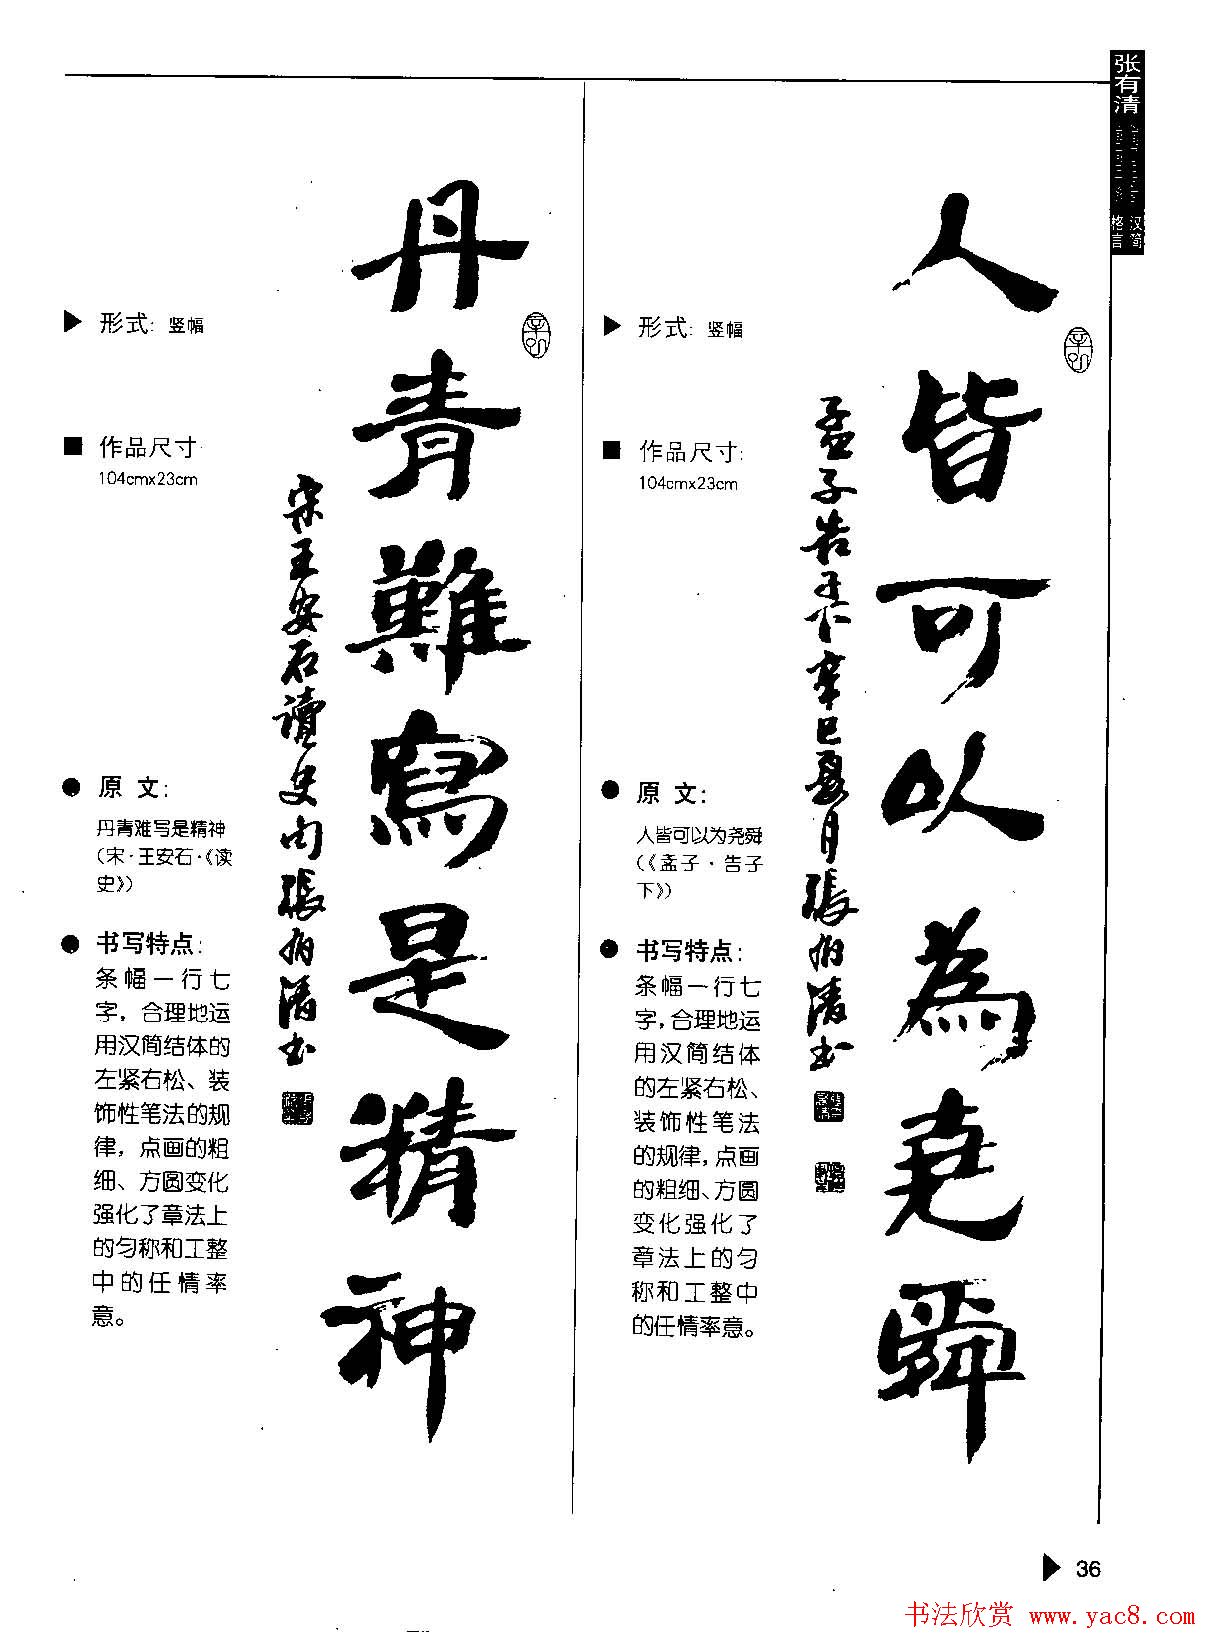 张有清
汉简
格言
人皆可以為堯舜
孟子告子下辛巳夏月張有清书
形式: 竖幅
作品尺寸:
104cmx23cm
原 文:
人皆可以为尧舜
(《孟子·告子
下》)
书写特点:
条幅一行七
字,合理地运
用汉简结体
的左紧右松、
装饰性笔法
的规律,点画
的粗细、方圆
变化强化了
章法上的匀
称和工整中
的任情率意。
丹青難寫是精神
宋王安石讀史句張有清书
形式: 竖幅
作品尺寸
104cmx23cm
原 文:
丹青难写是精神
(宋·王安石·《读
史》)
书写特点:
条幅一行七
字，合理地运
用汉简结体的
左紧右松、装
饰性笔法的规
律，点画的粗
细、方圆变化
强化了章法上
的匀称和工整
中的任情率
意。
36
书法欣赏 www.yac8.com